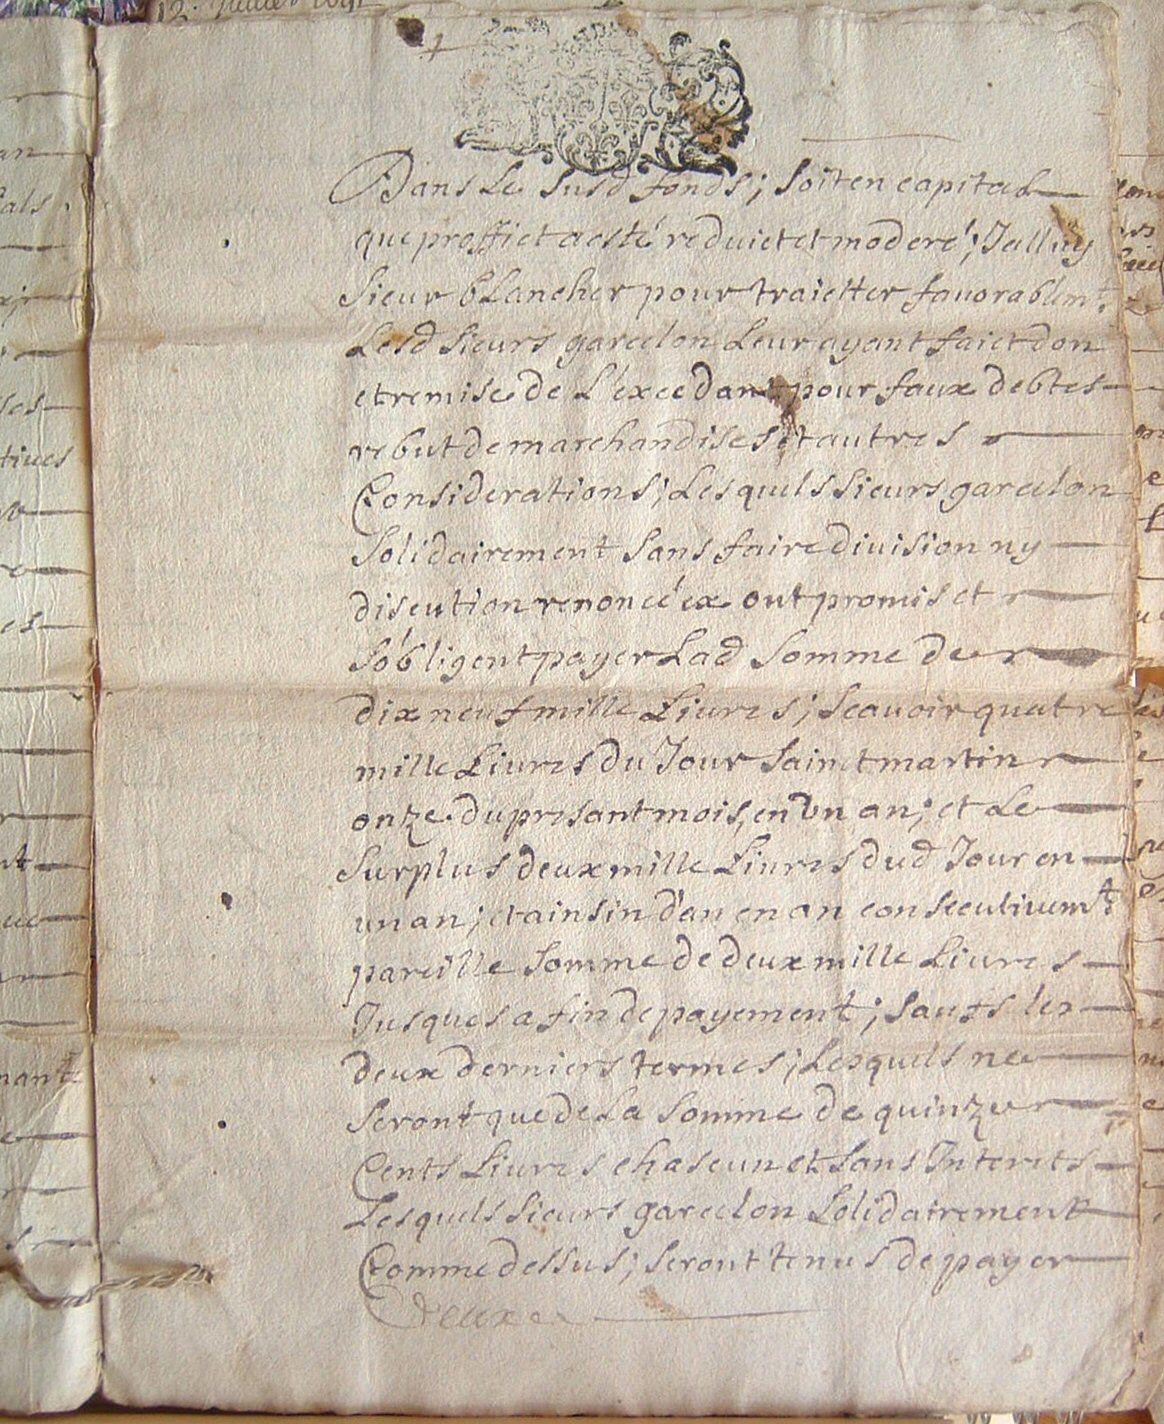 Dans Le susd fonds; soit en capital
que proffict a esté reduict et moderé; Icelluy
Sieur bLancher pour traietter fauorablemt.
Lesd sieurs garcelon Leur ayant faict don
et remise de L'excedant pour faux debtes
rebut de marchandises et autres
Considerations; Lesquels sieurs garcelon
Solidairement sans faire diuision ny
discution renoncé ex ont promis et
s'obligent payer Lad somme de
dix neuf mille Liures; scauoir quatre
mille Liures du Jour sainct martin
onze du presant mois, en vn an; et Le
surplus deux mille Liures dud Jour en
un an; et ainsin d'an en an consecutiuemt.
pareille somme de deux mille Liures
Jusques a fin de payement; sauf les
deux derniers termes; Lesquels ne
seront que de La somme de quinze
Cents Liures chascun et sans Interets
Lesquels sieurs garcelon solidairement
Comme dessus; seront tenus de payer
Deux